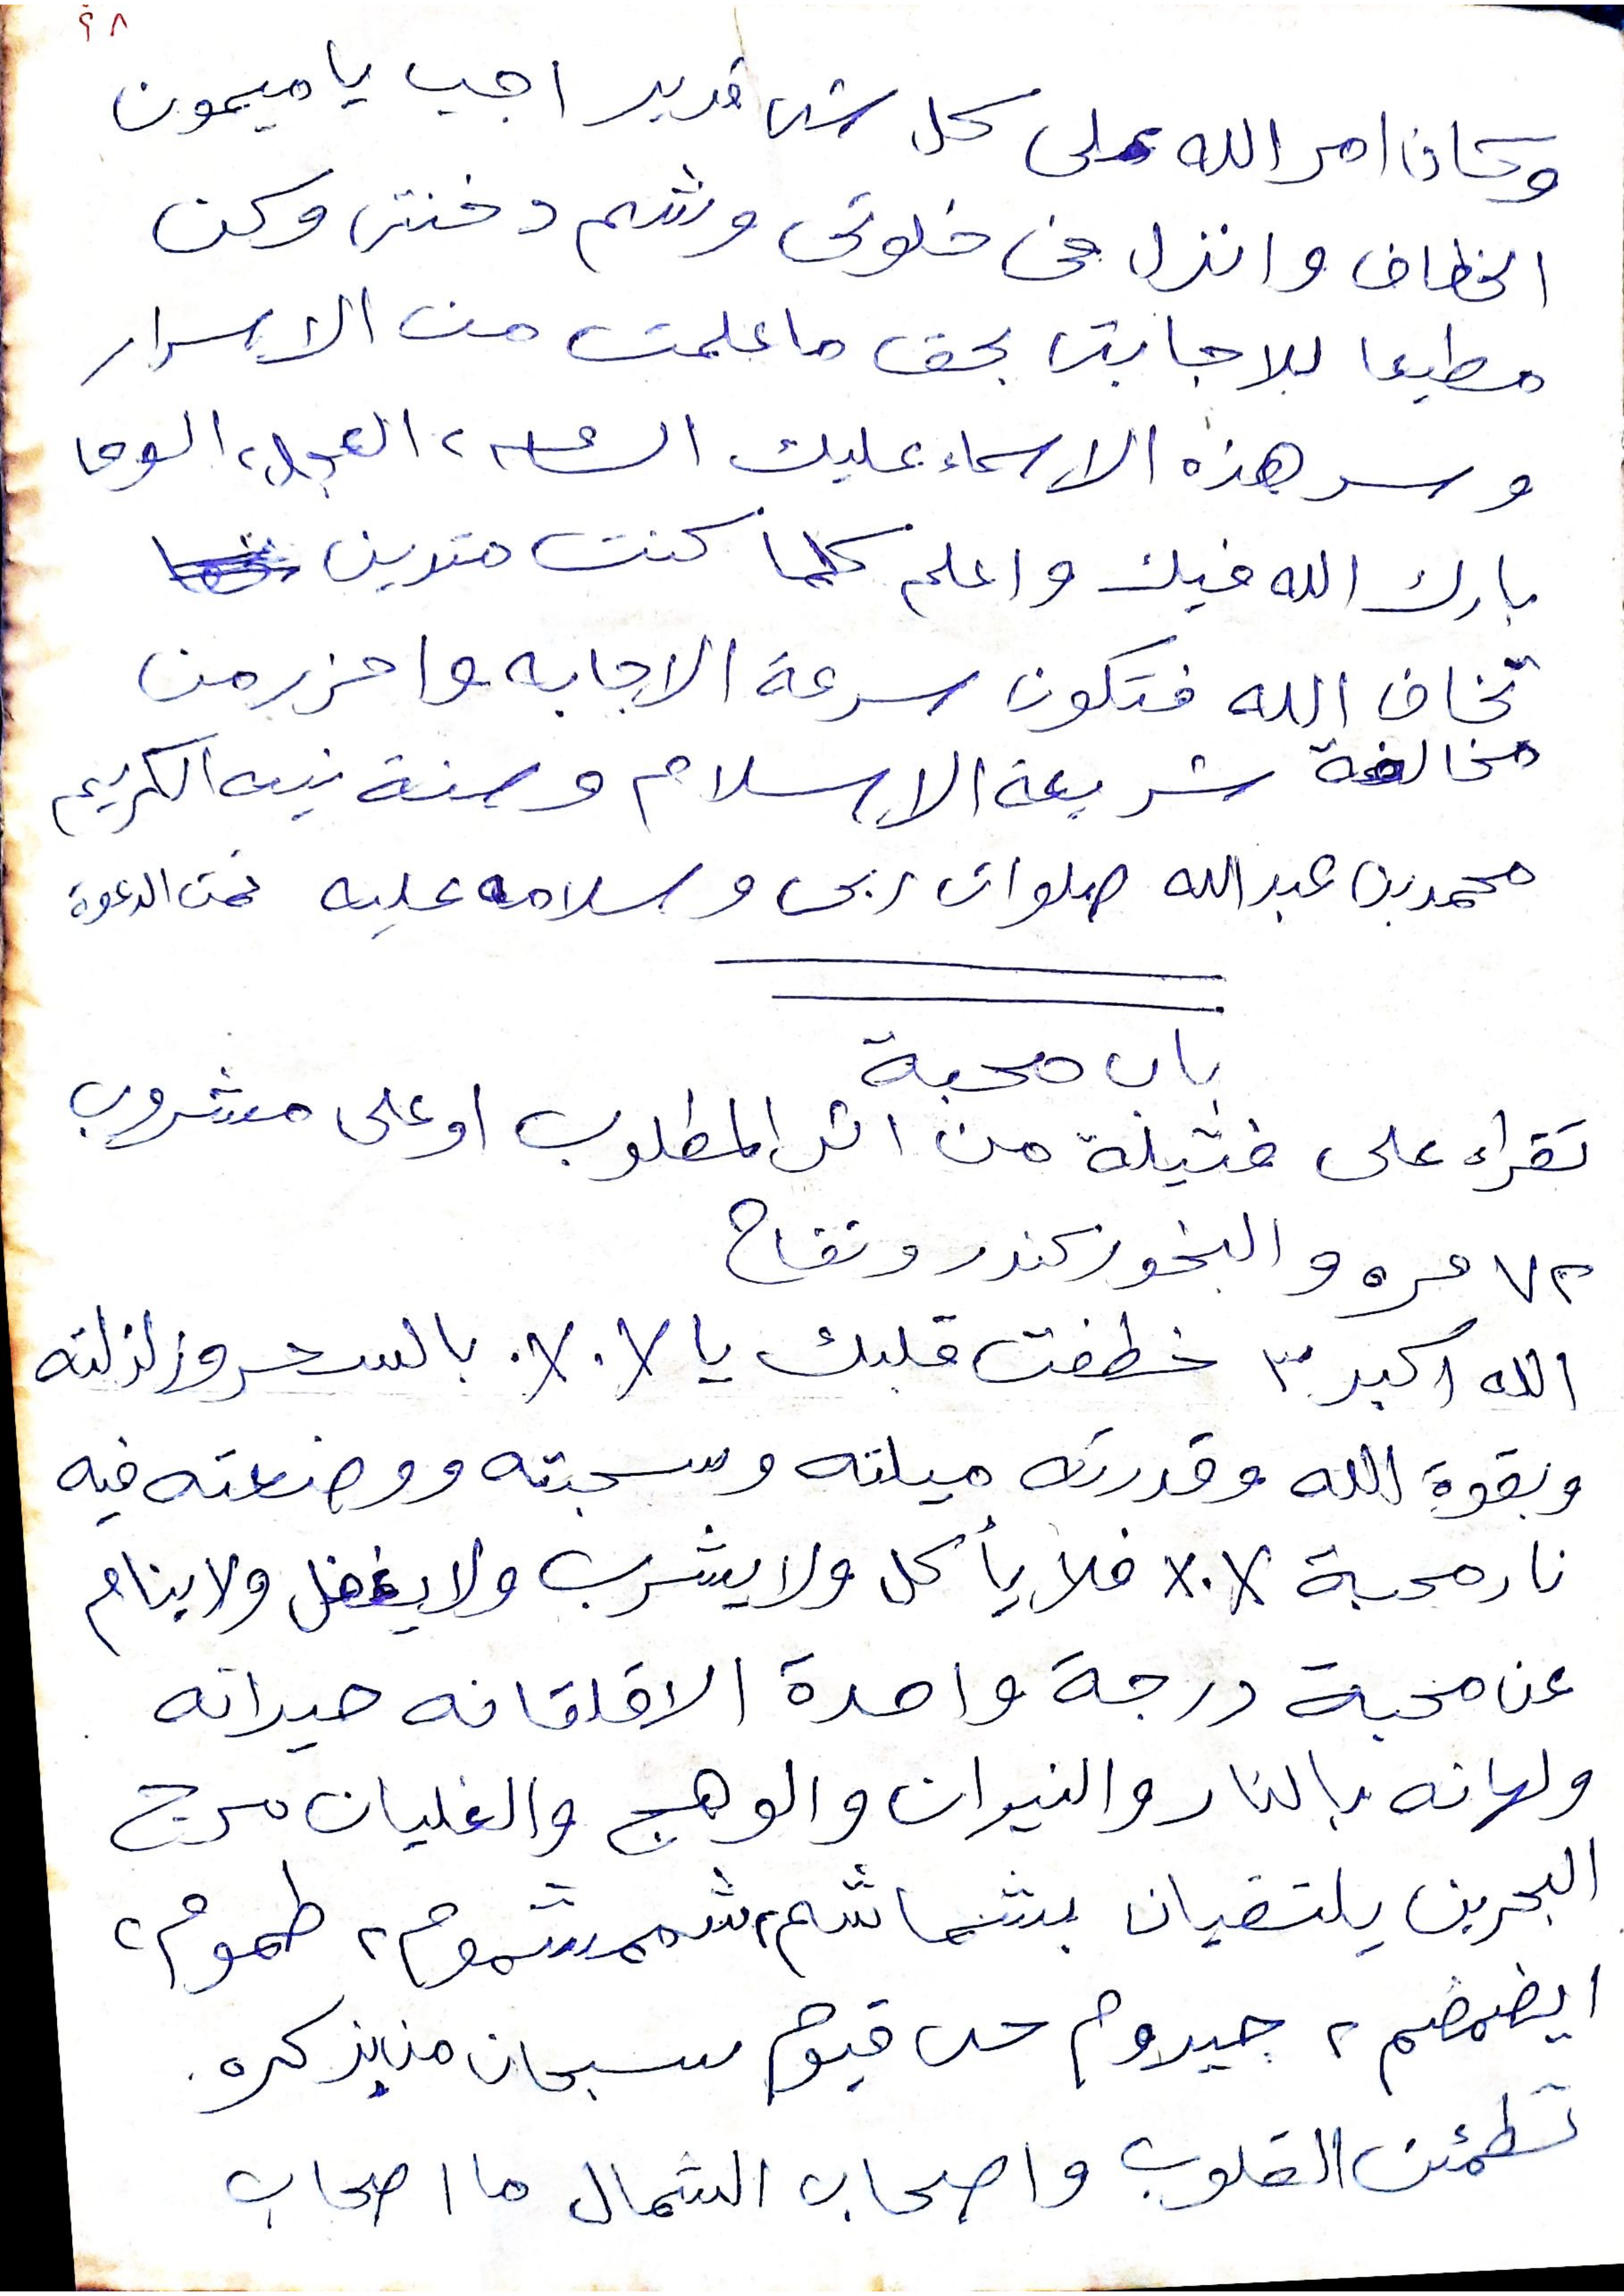 ٩٨
وكان امر الله على كل شى قدير اجب يا ميمون
الخطاف وانزل فى خلوتى وشم دخنتى وكن
مطيعا للاجابتى بحق ما علمت من الاسرار
وسر هذه الاسماء عليك الساعه ٢ العجل ٢ الوحا
بارك الله فيك واعلم كلما كنت متدين
تخاف الله فتكون سرعة الاجابه واحزر من
مخالفة شريعة الاسلام وسنة نبيه الكريم
محمد بن عبد الله صلوات ربى وسلامه عليه تمت الدعوة
باب محبة
تقراء على فتيلة من اثر المطلوب او على مشروب
٧٢ مره والبخور كندر وتفاح
الله اكبر ٣ خطفت قلبك يا ٪ ٪ بالسحر وزلزلته
وبقوة الله وقدرته ميلته وسحبته ووضعته فيه
نار محبة ٪ ٪ فلا يأكل ولا يشرب ولا يغفل ولا ينام
عن محبة درجة واحدة الا قلقانه حيرانه
ولهانه بالنار والنيران والوهج والغليان مرج
البحرين يلتقيان بشماشم ٢ شمشموم ٢ طموم ٢
ايضمضم ٢ جيدوم حى قيوم سبحان من بذكره
تطمئن القلوب واصحاب الشمال ما اصحاب